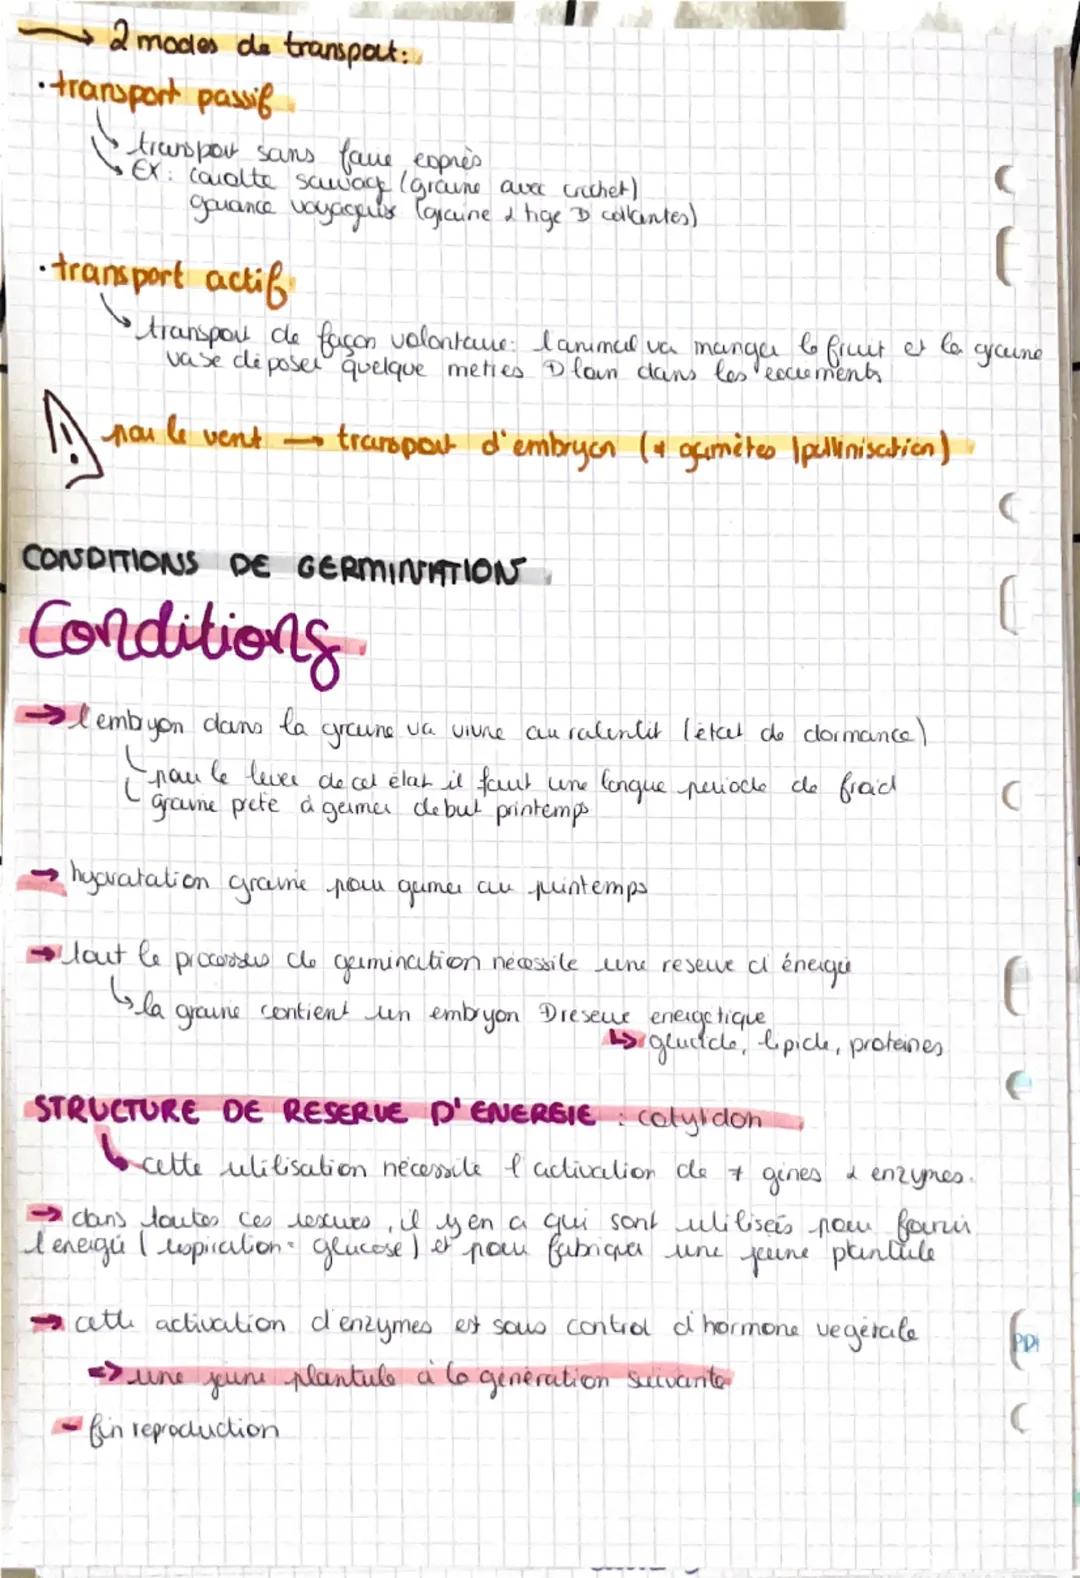 → 2 modes de transport:
· transport passif
↳ transport sans faire exprès
↳ EX: carotte sauvage (graine avec crochet)
garance voyageuse (graine & tige ⊕ collantes)
· transport actif
↳ transport de façon volontaire: l'animal va manger le fruit et la graine
va se déposer quelque mètres ⊕ loin dans les excréments
⚠ par le vent → transport d'embryon (≠ gamètes / pollinisation)
CONDITIONS DE GERMINATION
Conditions
→ l'embryon dans la graine va vivre au ralentit (état de dormance)
↳ pour le lever de cet état il faut une longue periode de froid
↳ graine prete à germer debut printemps
→ hydratation graine pour germer au printemps
→ tout le processus de germination nécessite une reserve d'énergie
↳ la graine contient un embryon ⊕ reserve energetique
↳ glucide, lipide, proteines
STRUCTURE DE RESERVE D'ENERGIE : cotyldon
↳ cette utilisation nécessite l'activation de ≠ gènes & enzymes.
→ dans toutes ces reserves, il y en a qui sont utilisés pour fournir
l'energie (respiration = glucose) et pour fabriquer une jeune plantule
→ cette activation d'enzymes est sous control d'hormone vegétale
=> une jeune plantule à la génération suivante
- fin reproduction
PDi